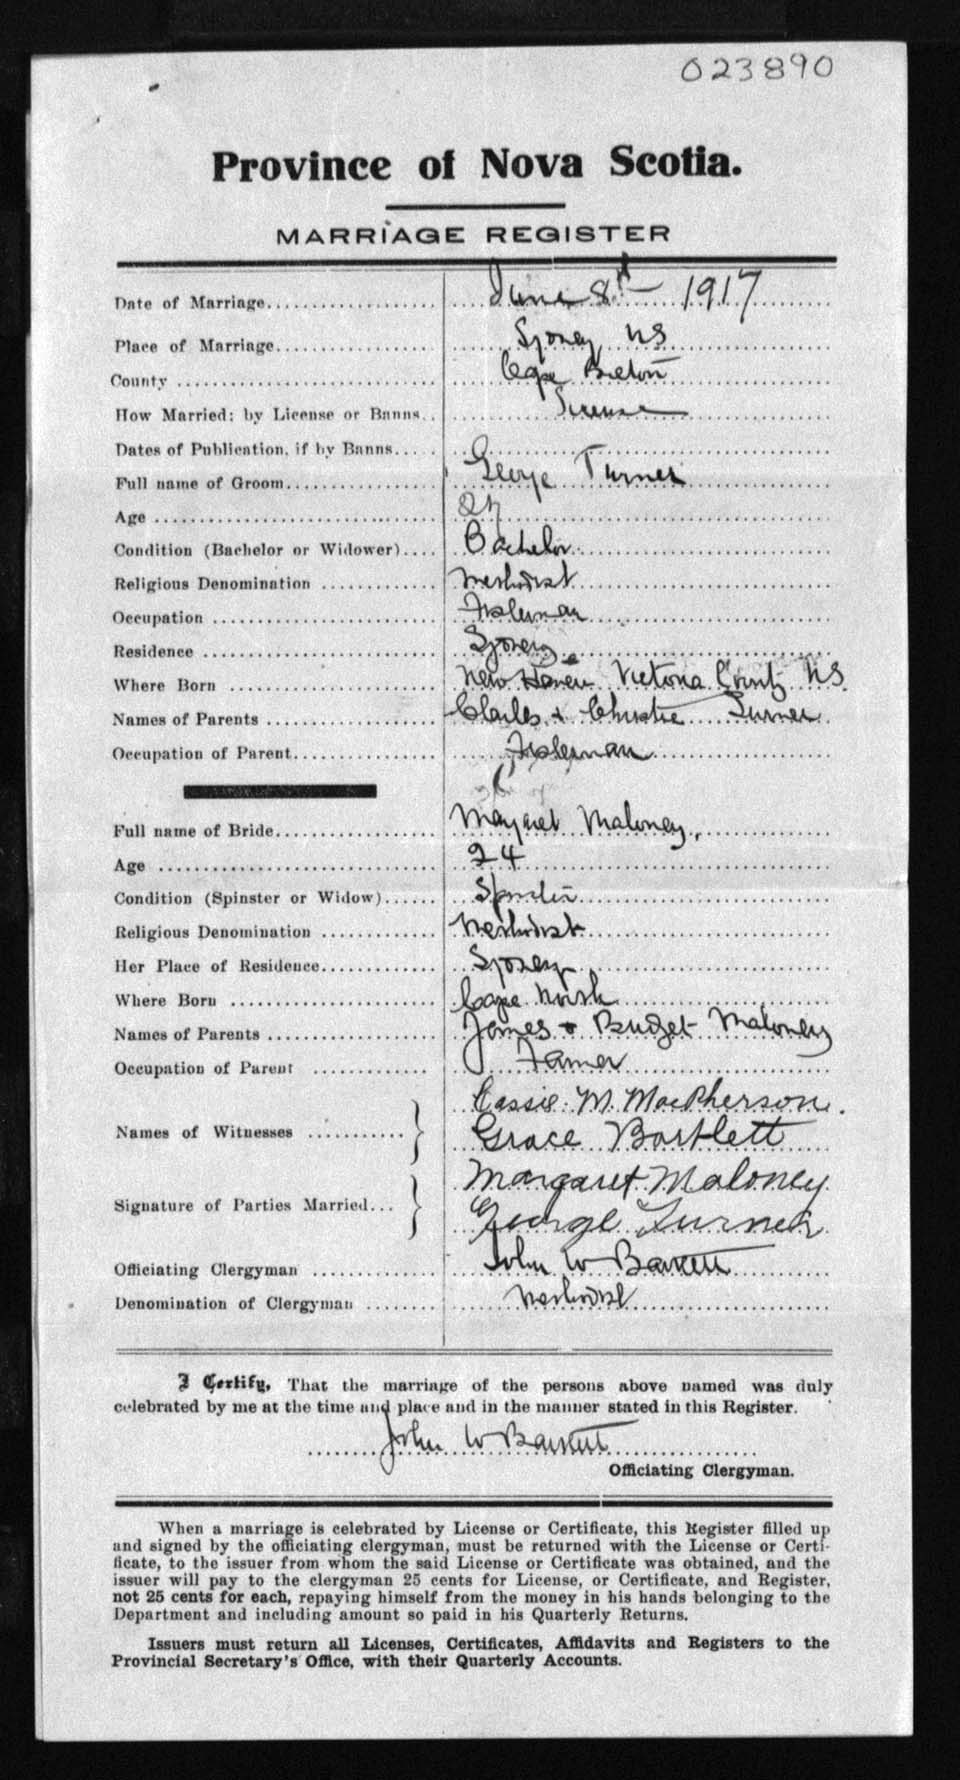 023890
Province of Nova Scotia.
MARRIAGE REGISTER
Date of Marriage.................... June 8th 1917
Place of Marriage................... Sydney NS
County .............................. Cape Breton
How Married: by License or Banns.. License
Dates of Publication, if by Banns.....
Full name of Groom.................. George Turner
Age ..............................
Condition (Bachelor or Widower).... Bachelor
Religious Denomination ............. Methodist
Occupation .......................... Fisherman
Residence ........................... Sydney
Where Born ........................ New Haven Victoria County NS
Names of Parents ................... Charles & Christie Turner
Occupation of Parent................ Fisherman
Full name of Bride.................. Margaret Maloney
Age ............................... 24
Condition (Spinster or Widow)...... Spinster
Religious Denomination ............. Methodist
Her Place of Residence............. Sydney
Where Born ........................ Cape North
Names of Parents ................... James & Bridget Maloney
Occupation of Parent ............. Farmer
Cassie M. MacPherson.
Names of Witnesses ........... } Grace Bartlett
Margaret Maloney
Signature of Parties Married... } George Turner
Officiating Clergyman ............. John W
Denomination of Clergyman ........ Methodist
I Certify, That the marriage of the persons above named was duly
celebrated by me at the time and place and in the manner stated in this Register.
John W
Officiating Clergyman.
When a marriage is celebrated by License or Certificate, this Register filled up
and signed by the officiating clergyman, must be returned with the License or Certi-
ficate, to the issuer from whom the said License or Certificate was obtained, and the
issuer will pay to the clergyman 25 cents for License, or Certificate, and Register,
not 25 cents for each, repaying himself from the money in his hands belonging to the
Department and including amount so paid in his Quarterly Returns.
Issuers must return all Licenses, Certificates, Affidavits and Registers to the
Provincial Secretary's Office, with their Quarterly Accounts.